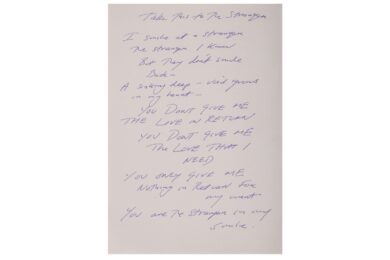 Take This to The Stranger
I smile at a stranger
The stranger I knew
But They don't smile
Back –
A deep – void grows
in my heart –
YOU DON'T GIVE ME
THE LOVE IN RETURN
YOU DON'T GIVE ME
The LOVE THAT I
NEED
YOU ONLY GIVE ME
Nothing in Return For
my
You are The Stranger in my
Smile.